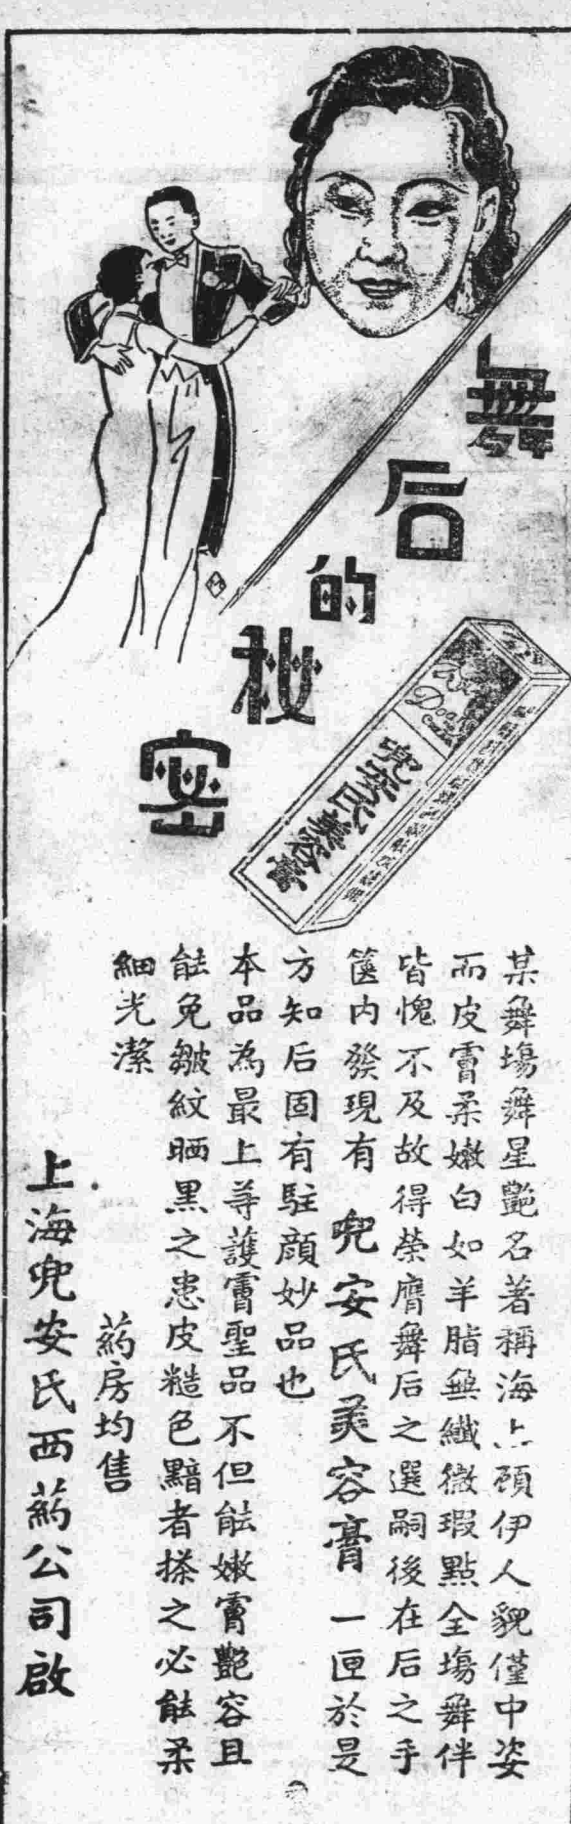 舞后的秘密
Doan
兜安氏美容膏
某舞場舞星艷名著稱海上顧伊人貌僅中姿
而皮膚柔嫩白如羊脂無纖微瑕點全場舞伴
皆愧不及故得榮膺舞后之選嗣後在后之手
篋内發現有兜安氏美容膏一匣於是
方知后固有駐顔妙品也
本品為最上等護膚聖品不但能嫩膚艷容且
能免皺紋晒黑之患皮糙色黯者搽之必能柔
細光潔
葯房均售
上海兜安氏西葯公司啟